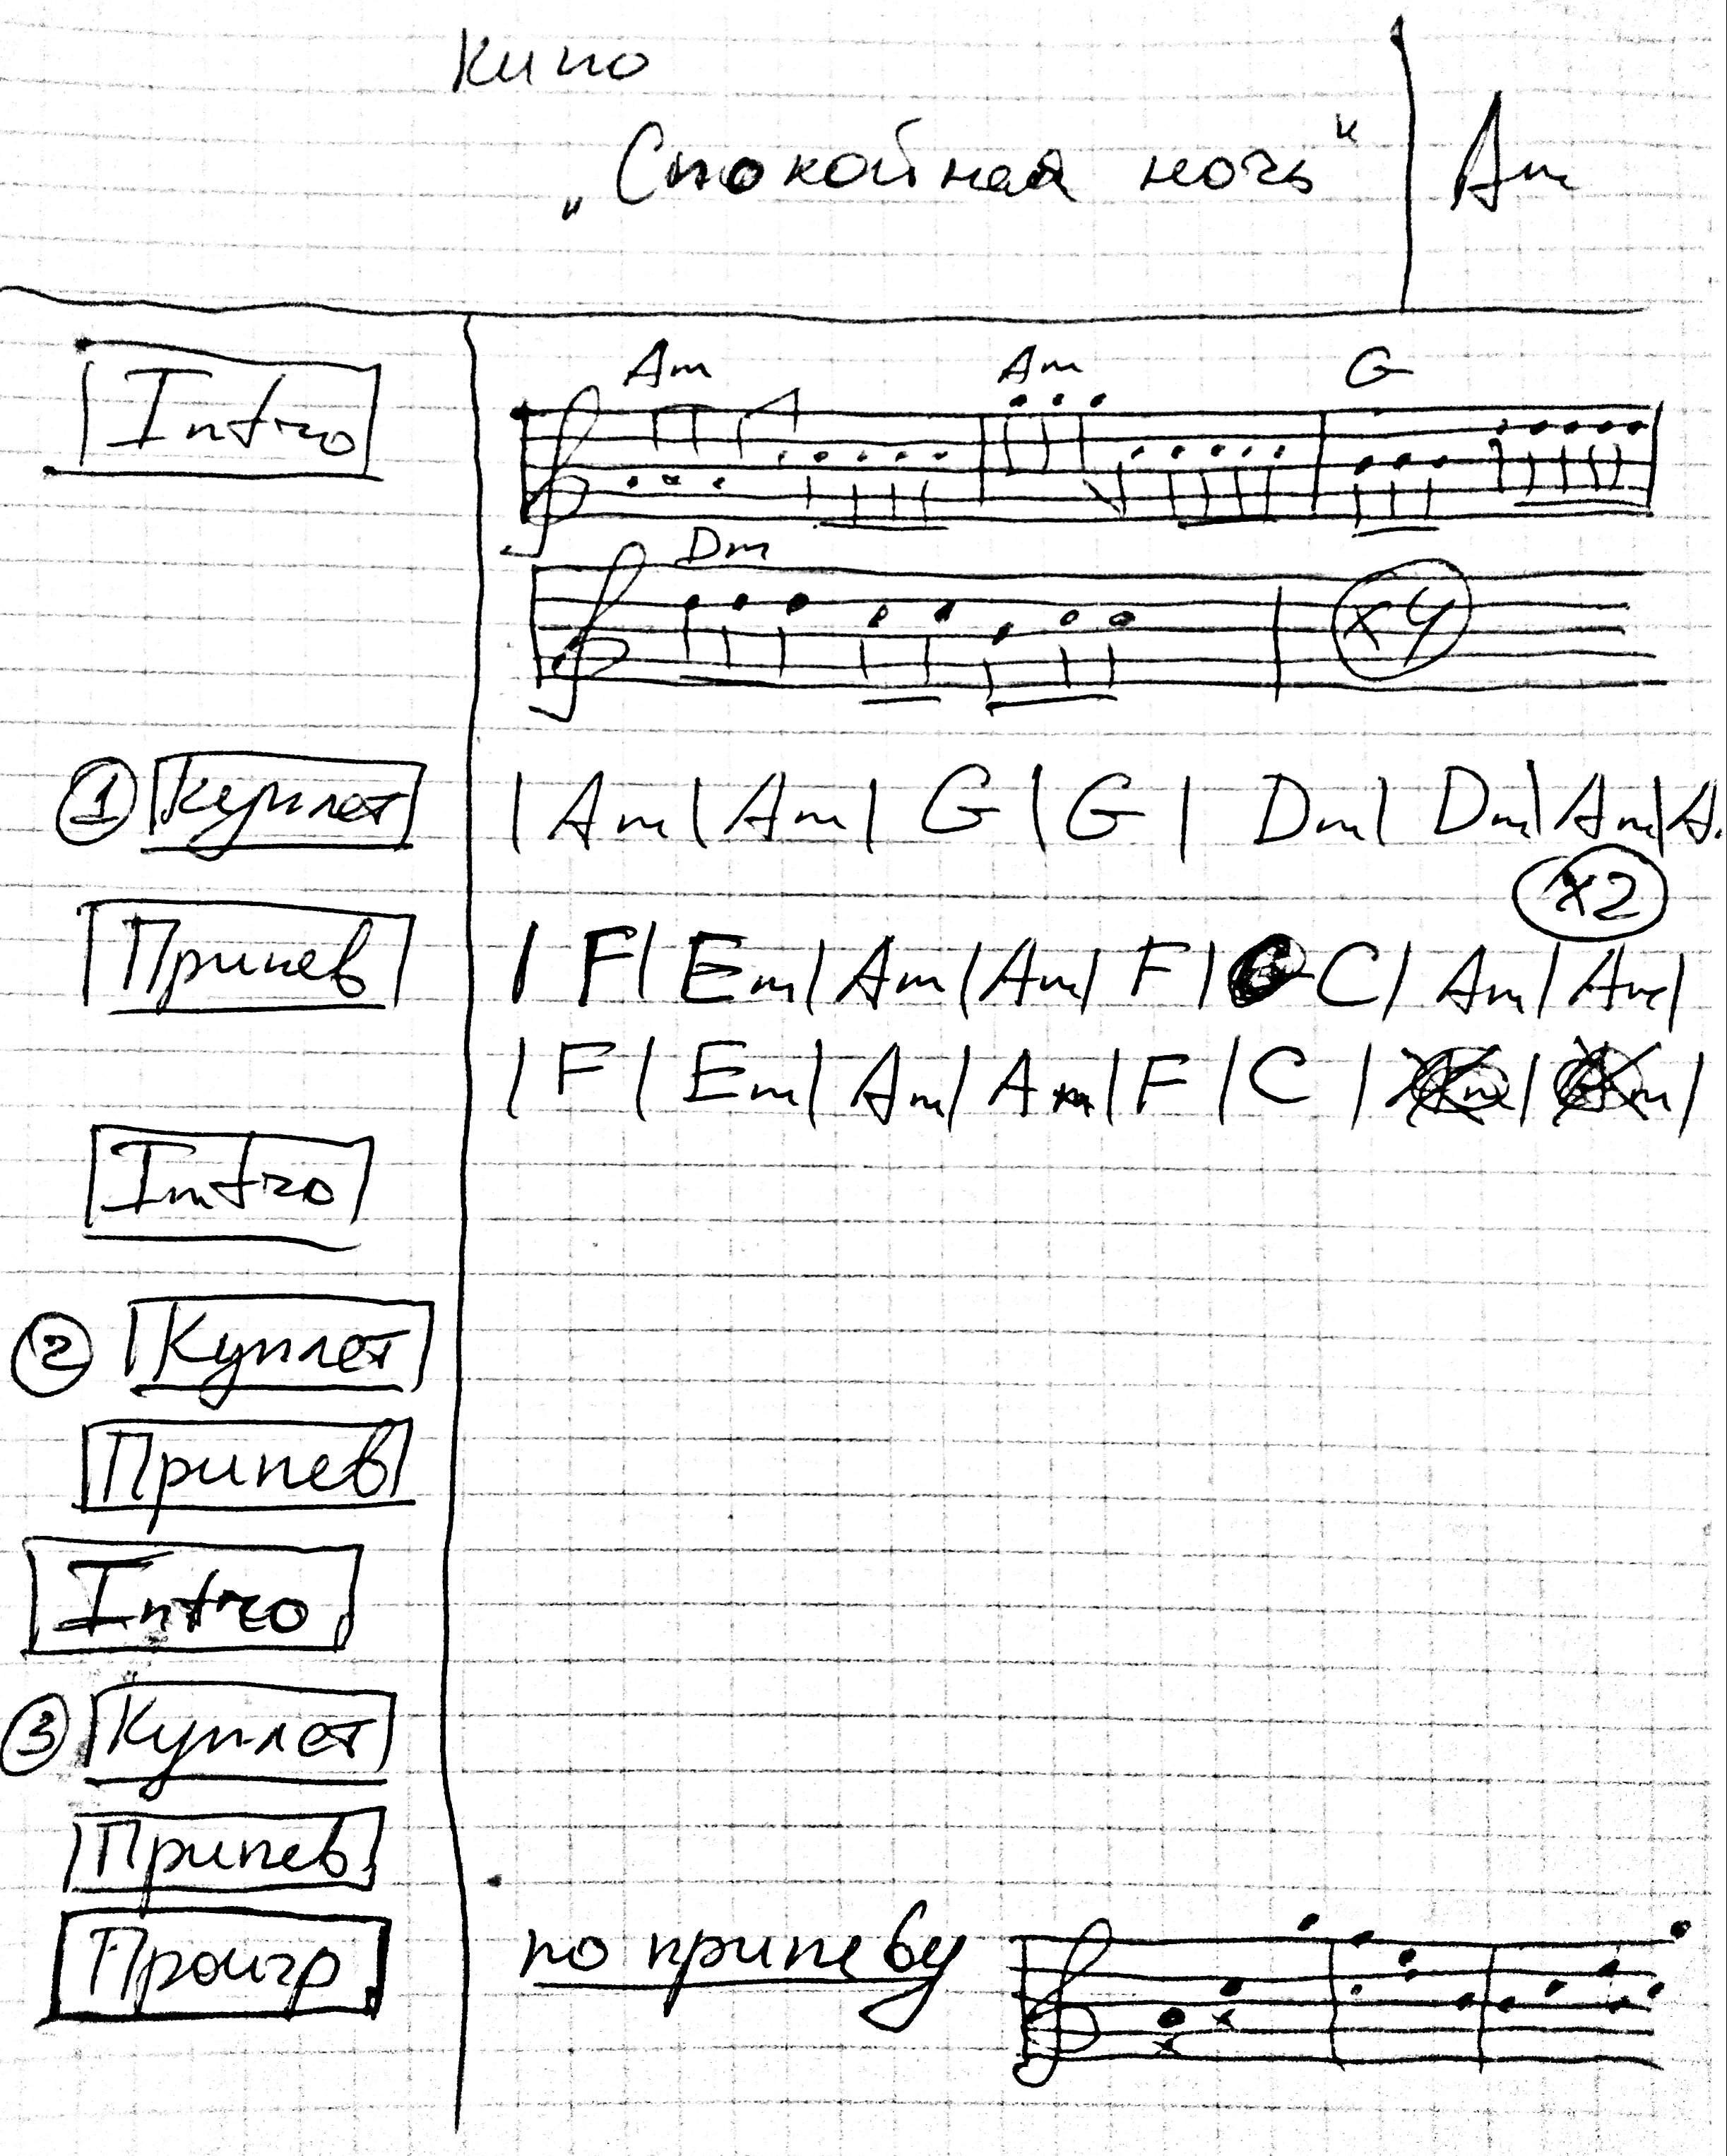 Кино
„Спокойная ночь“ | Am
Intro
Am Am G
Dm x4
① Куплет | Am | Am | G | G | Dm | Dm | Am | A.
x2
Припев | F | Em | Am | Am | F | C | Am | Am |
| F | Em | Am | Am | F | C | | |
Intro
② Куплет
Припев
Intro
③ Куплет
Припев
Проигр по припеву